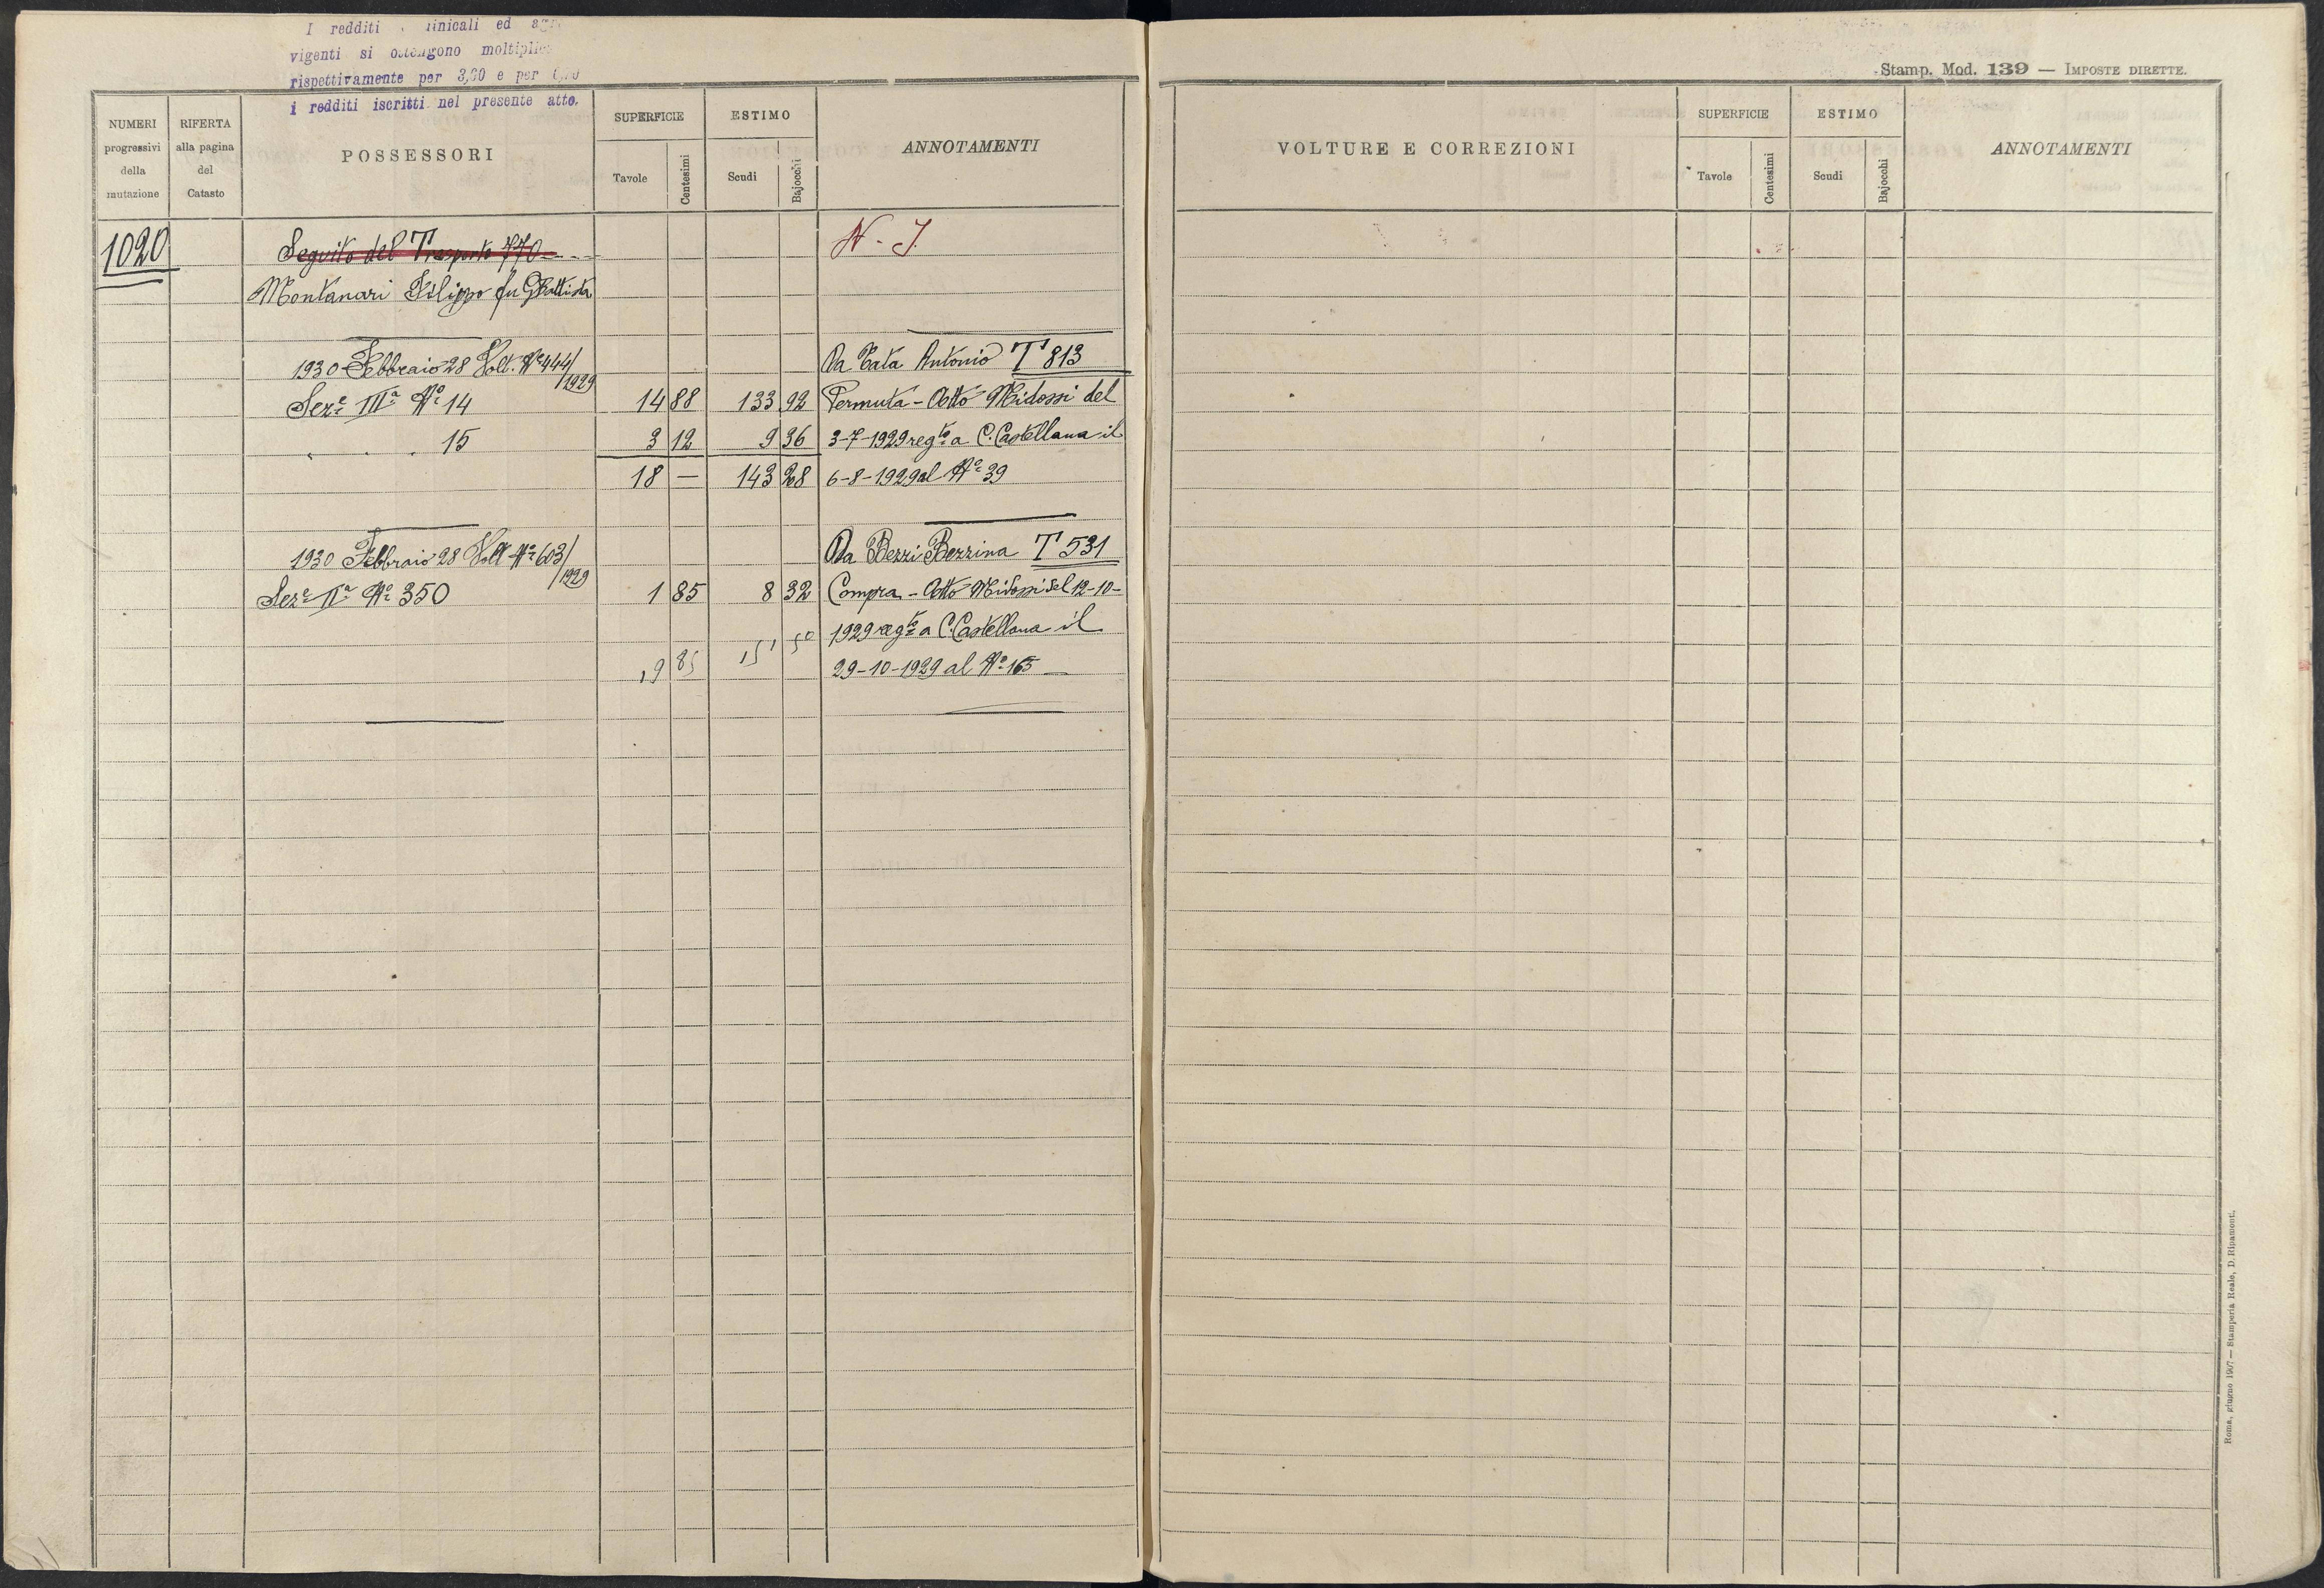 I redditi inicali ed
vigenti si ottengono
rispettivamente per e per
i redditi iscritti nel presente atto.
Stamp. Mod. 139 — IMPOSTE DIRETTE.
NUMERI
progressivi
della
mutazione
RIFERTA
alla pagina
del
Catasto
POSSESSORI
SUPERFICIE
Tavole
Centesimi
ESTIMO
Scudi
Bajocchi
ANNOTAMENTI
1020
Seguito del Trasporto 770
N.
Montanari Filippo fu GBattista
1930 Febbraio 28 Volt. Nº 444/1929
Da Tata Antonio T 813
Sezᵉ IIIª Nº 14
14 88 133 92
Permuta - Atto Midossi del
" " " 15
3 12 9 36
3-7-1929 regto a C. Castellana il
18 — 143 28
6-8-1929 al Nº 39
1930 Febbraio 28 Volt Nº 603/1929
Da Bezzi Bezzina T 531
Sezᵉ IIª Nº 350
1 85 8 32
Compra - Atto Midossi del 12-10-
1929 regto a C. Castellana il
19 85 151 50
29-10-1929 al Nº 165
VOLTURE E CORREZIONI
SUPERFICIE
Tavole
Centesimi
ESTIMO
Scudi
Bajocchi
ANNOTAMENTI
Roma, giugno 1907 — Stamperia Reale, D. Ripamonti.